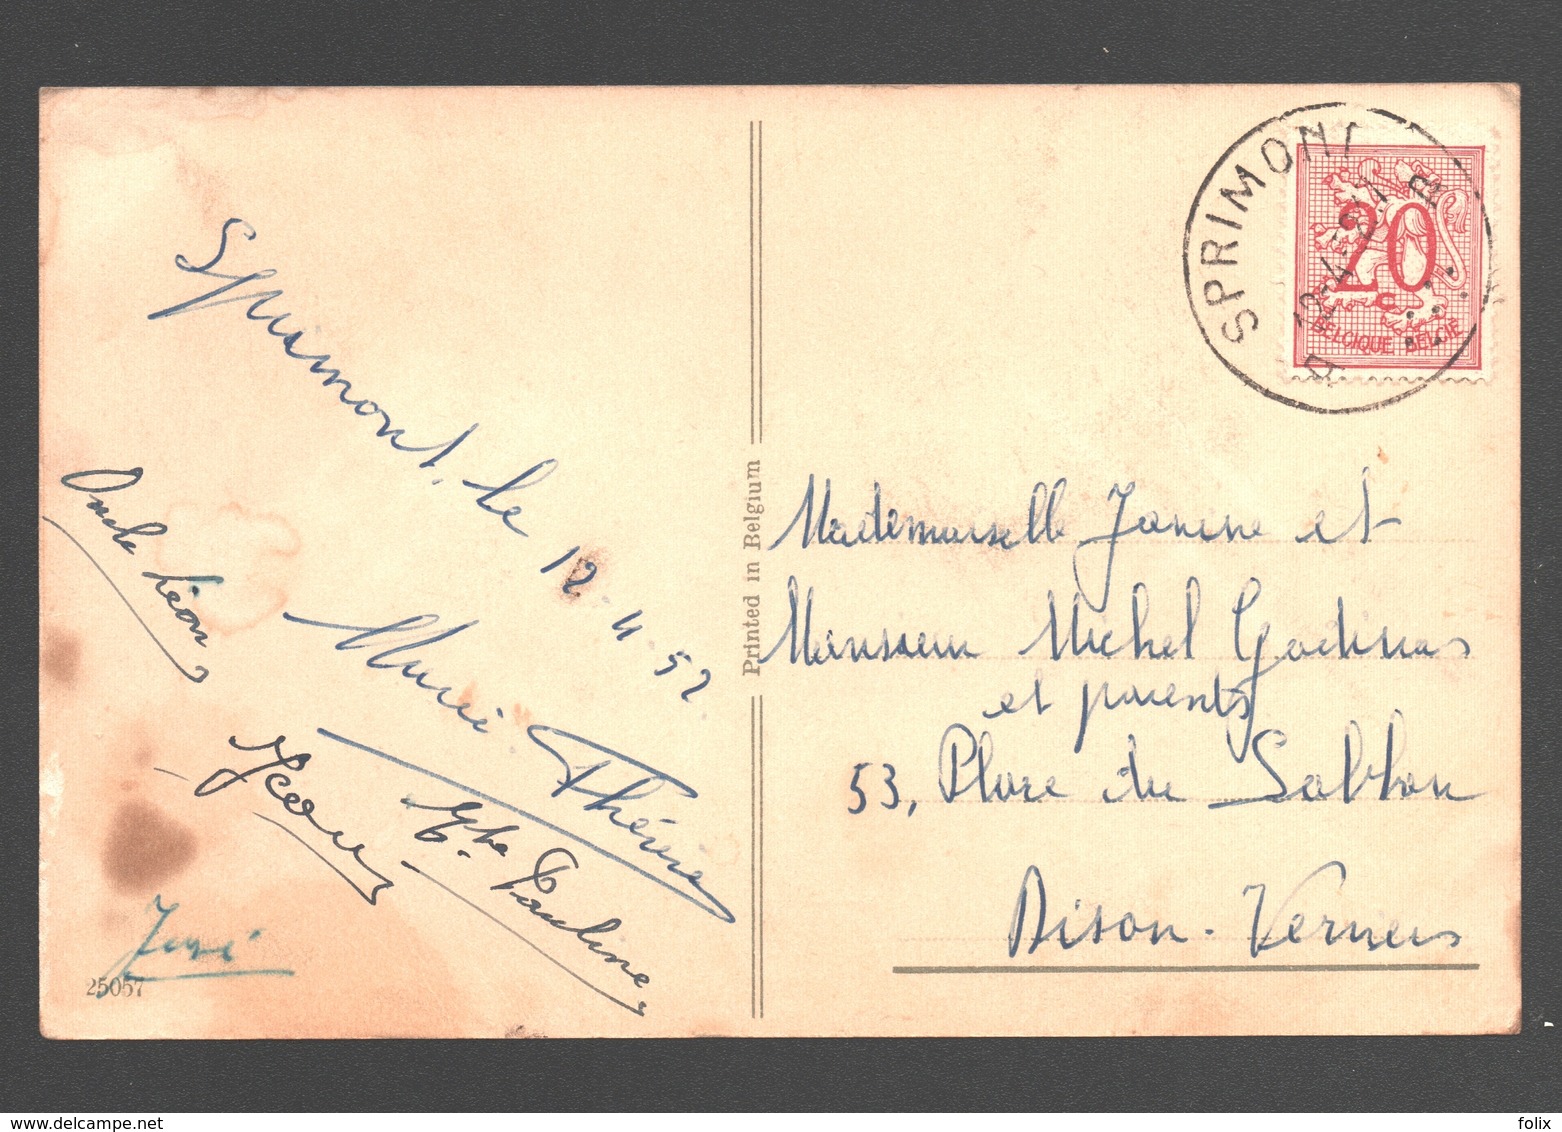 Sprimont, le 12.4.52.
Oncle Léon
Marie Thérèse
Jean
Tte Pauline
José
25057
Printed in Belgium
SPRIMONT
12-4-52
20
c
BELGIQUE BELGIE
Mademoiselle Janine et
Monsieur Michel Godinas
et parents
53, Place du Sablon
Dison-Verviers
felix